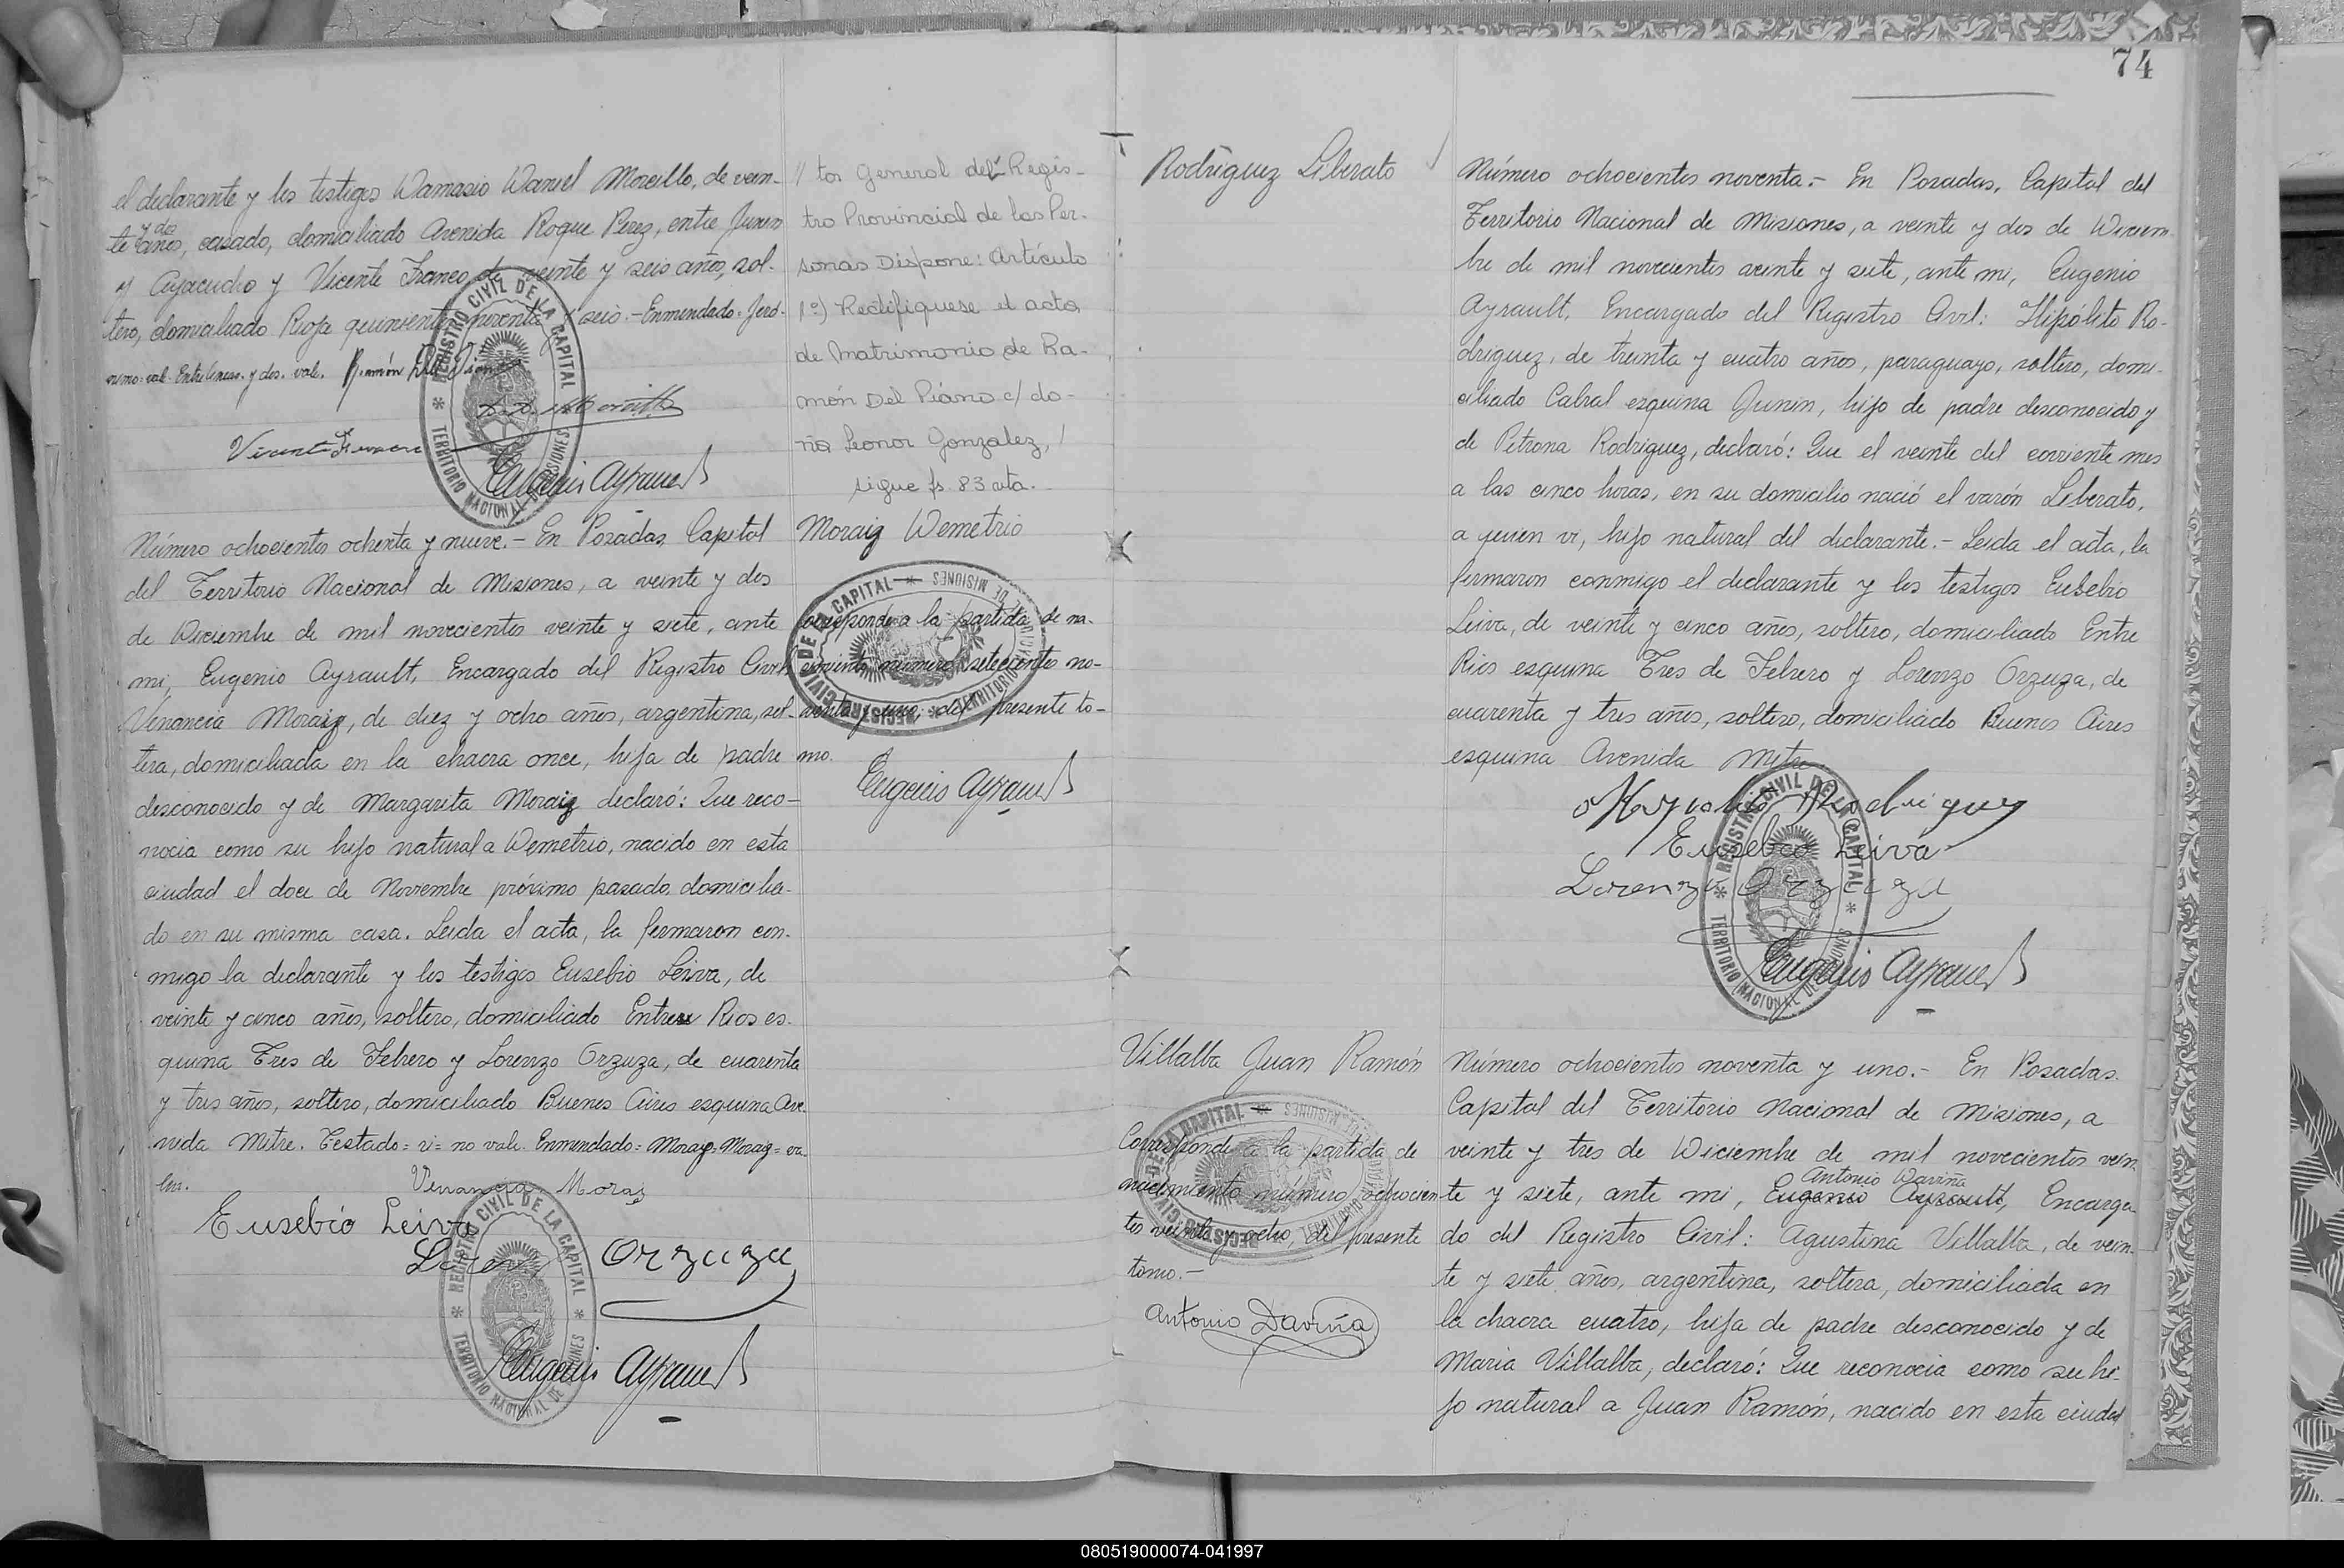 el declarante y los testigos Damasio Daniel Morcillo, de vein-
y dos
te años, casado, domiciliado Avenida Roque Perez, entre Junin
y Ayacucho y Vicente Franco, de veinte y seis años, sol-
tero, domiciliado Rioja quinientos noventa y seis.- Enmendado= Jeró-
nimo=vale. Entre lineas= y dos. vale. Ramón Del Piano
Vicente Franco
Eugenio Ayrault
Número ochocientos ochenta y nueve.- En Posadas, Capital
del Territorio Nacional de Misiones, a veinte y dos
de Diciembre de mil novecientos veinte y siete, ante
mi, Eugenio Ayrault, Encargado del Registro Civil,
Venancia Moraiz, de diez y ocho años, argentina, sol-
tera, domiciliada en la chacra once, hija de padre
desconocido y de Margarita Moraiz declaró: Que reco-
nocia como su hijo natural a Demetrio, nacido en esta
ciudad el doce de Noviembre próximo pasado, domicilia-
do en su misma casa. Leida el acta, la firmaron con-
migo la declarante y los testigos Eusebio Leiva, de
veinte y cinco años, soltero, domiciliado Entre Rios es-
quina Tres de Febrero y Lorenzo Orzuza, de cuarenta
y tres años, soltero, domiciliado Buenos Aires esquina Ave-
nida Mitre. Testado= vi= no vale. Enmendado= Moraiz= Moraiz= va-
len.
Venancia Moraz
Eusebio Leiva
Lorenzo Orzuza
Eugenio Ayrault
REGISTRO CIVIL DE LA CAPITAL
TERRITORIO NACIONAL DE MISIONES
// tor General del Regis-
tro Provincial de las Per-
sonas Dispone: Artículo
1º) Rectifiquese el acta
de Matrimonio de Ra-
món Del Piano c/ do-
ña Leonor Gonzalez, /
sigue fs. 83 vta.-
Moraiz Demetrio
Corresponde a la partida de na-
cimiento número setecientos no-
venta y uno, del presente to-
mo.
Eugenio Ayrault
74
Rodriguez Liberato
Número ochocientos noventa.- En Posadas, Capital del
Territorio Nacional de Misiones, a veinte y dos de Diciem-
bre de mil novecientos veinte y siete, ante mi, Eugenio
Ayrault, Encargado del Registro Civil: Hipólito Ro-
driguez, de treinta y cuatro años, paraguayo, soltero, domi-
ciliado Cabral esquina Junin, hijo de padre desconocido y
de Petrona Rodriguez, declaró: Que el veinte del corriente mes
a las cinco horas, en su domicilio nació el varón Liberato,
a quien vi, hijo natural del declarante.- Leida el acta, la
firmaron conmigo el declarante y los testigos Eusebio
Leiva, de veinte y cinco años, soltero, domiciliado Entre
Rios esquina Tres de Febrero y Lorenzo Orzuza, de
cuarenta y tres años, soltero, domiciliado Buenos Aires
esquina Avenida Mitre.
Rodriguez
Eusebio Leiva
Lorenzo Orzuza
Eugenio Ayrault
REGISTRO CIVIL DE LA CAPITAL
TERRITORIO NACIONAL DE MISIONES
Villalba Juan Ramón
Corresponde a la partida de
nacimiento número ochocien-
tos veinte y ocho, del presente
tomo.-
Antonio Daviña
Número ochocientos noventa y uno.- En Posadas.
Capital del Territorio Nacional de Misiones, a
veinte y tres de Diciembre de mil novecientos vein-
Antonio Daviña
te y siete, ante mi, Eugenio Ayrault, Encarga-
do del Registro Civil: Agustina Villalba, de vein-
te y siete años, argentina, soltera, domiciliada en
la chacra cuatro, hija de padre desconocido y de
Maria Villalba, declaró: Que reconocia como su hi-
jo natural a Juan Ramón, nacido en esta ciudad
080519000074-041997